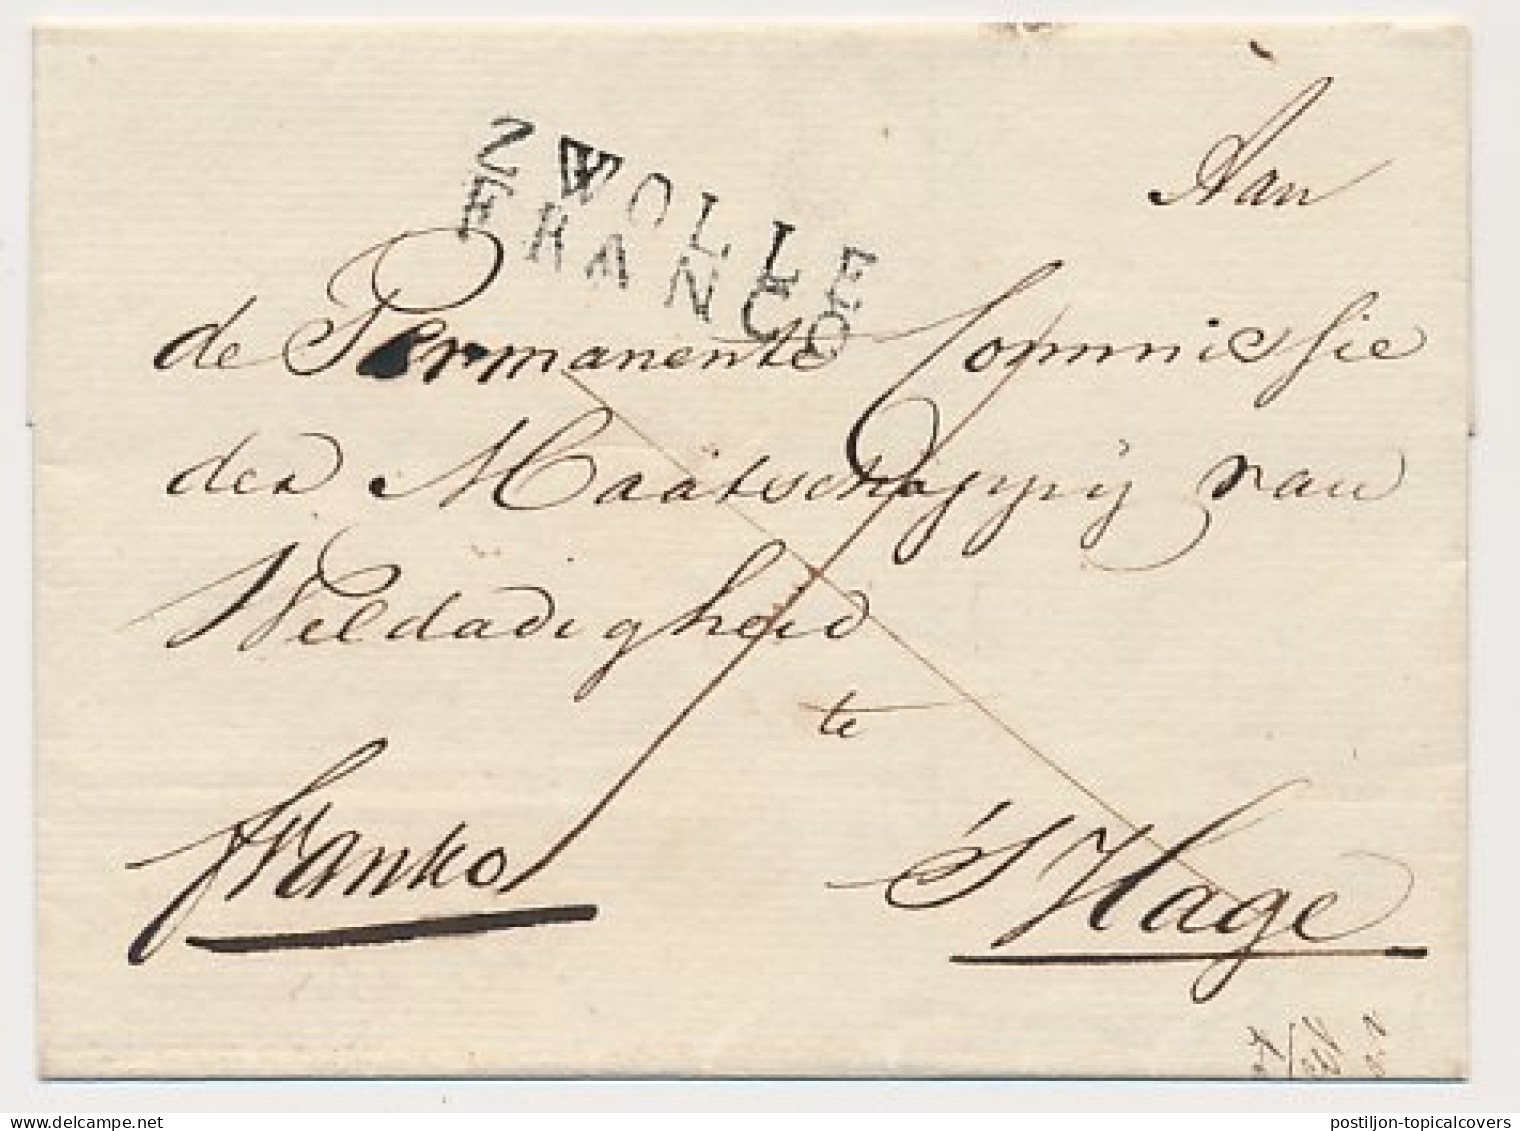 ZWOLLE
FRANCO
Aan
de Permanente Commissie
der Maatschappij van
Weldadigheid
te
'S Hage
franko
postiljon-topicalcovers